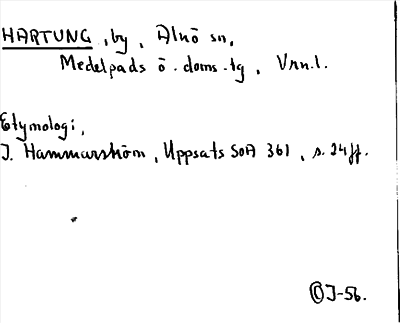 HARTUNG, by, Alnö sn,
Medelpads ö. doms.tg, Vrn.l.
Etymologi,
J. Hammarström, Uppsats SoA 361, s. 24ff.
OJ-56.